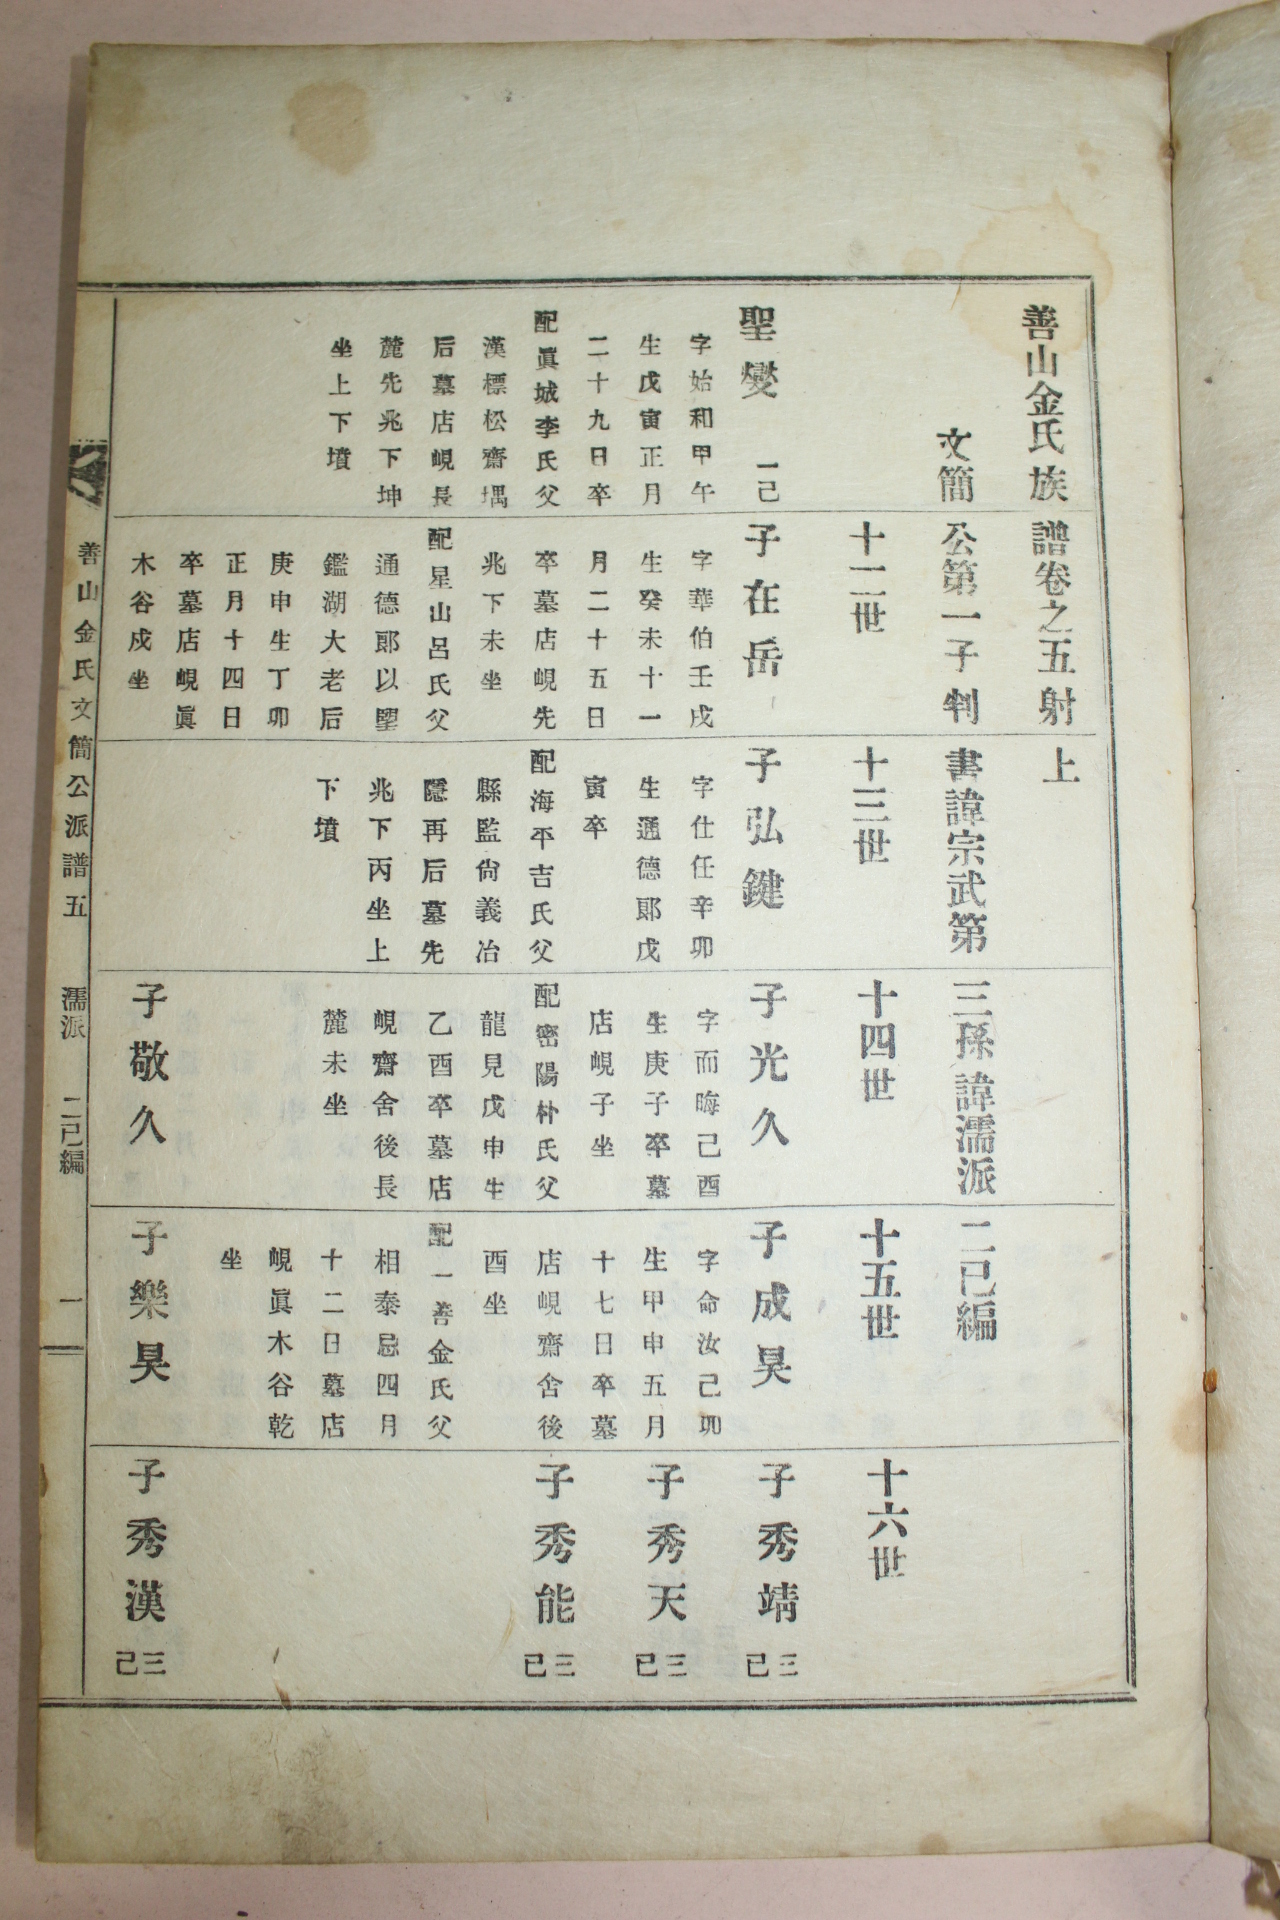 善山金氏族譜卷之五射上
文簡公第一子判書諱宗武第三孫諱濡派二己編
十二世
十三世
十四世
十五世
十六世
聖燮 一己
字始和甲午
生戊寅正月
二十九日卒
配眞城李氏父
漢標松齋堣
后墓店峴長
麓先兆下坤
坐上下墳
子在岳
字華伯壬戌
生癸未十一
月二十五日
卒墓店峴先
兆下未坐
配星山呂氏父
通德郞以望
鑑湖大老后
庚申生丁卯
正月十四日
卒墓店峴眞
木谷戌坐
子弘鍵
字仕任辛卯
生通德郞戊
寅卒
配海平吉氏父
縣監尙義冶
隱再后墓先
兆下丙坐上
下墳
子光久
字而晦己酉
生庚子卒墓
店峴子坐
配密陽朴氏父
龍見戊申生
乙酉卒墓店
峴齋舍後長
麓未坐
子敬久
子成昊
字命汝己卯
生甲申五月
十七日卒墓
店峴齋舍後
酉坐
配一善金氏父
相泰忌四月
十二日墓店
峴眞木谷乾
坐
子樂昊
子秀靖 三己
子秀天 三己
子秀能 三己
子秀漢 三己
善山金氏文簡公派譜五 濡派 二己編 一